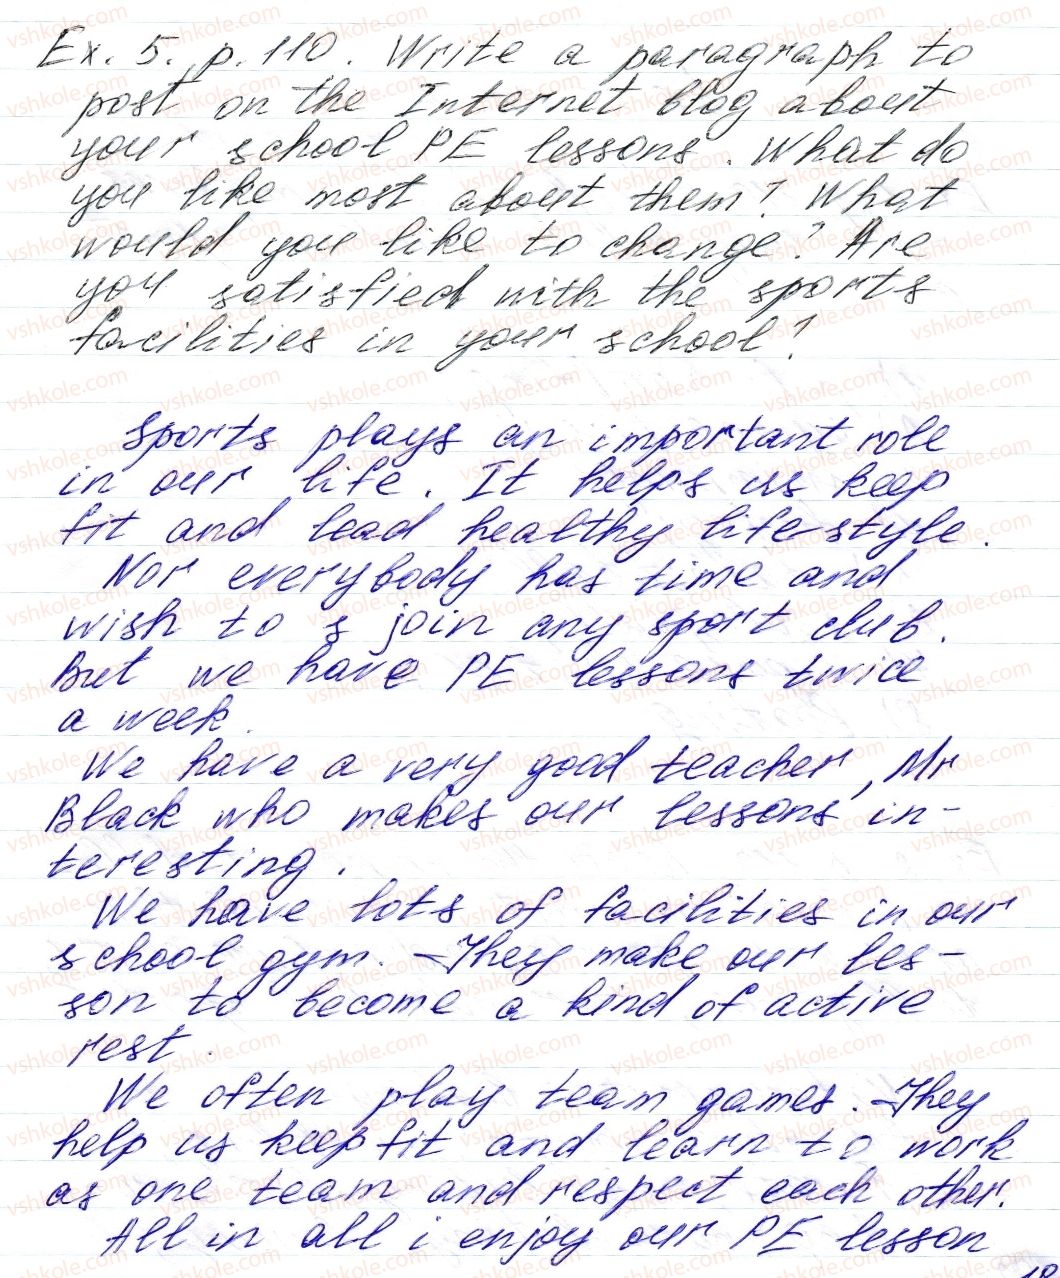 Ex. 5. p. 110. Write a paragraph to
post on the Internet blog about
your school PE lessons. What do
you like most about them? What
would you like to change? Are
you satisfied with the sports
facilities in your school?
Sports plays an important role
in our life. It helps us keep
fit and lead healthy life-style.
Nor everybody has time and
wish to s join any sport club.
But we have PE lessons twice
a week.
We have a very good teacher, Mr
Black who makes our lessons in-
teresting.
We have lots of facilities in our
school gym. They make our les-
son to become a kind of active
rest.
We often play team games. They
help us keep fit and learn to work
as one team and respect each other.
All in all i enjoy our PE lesson